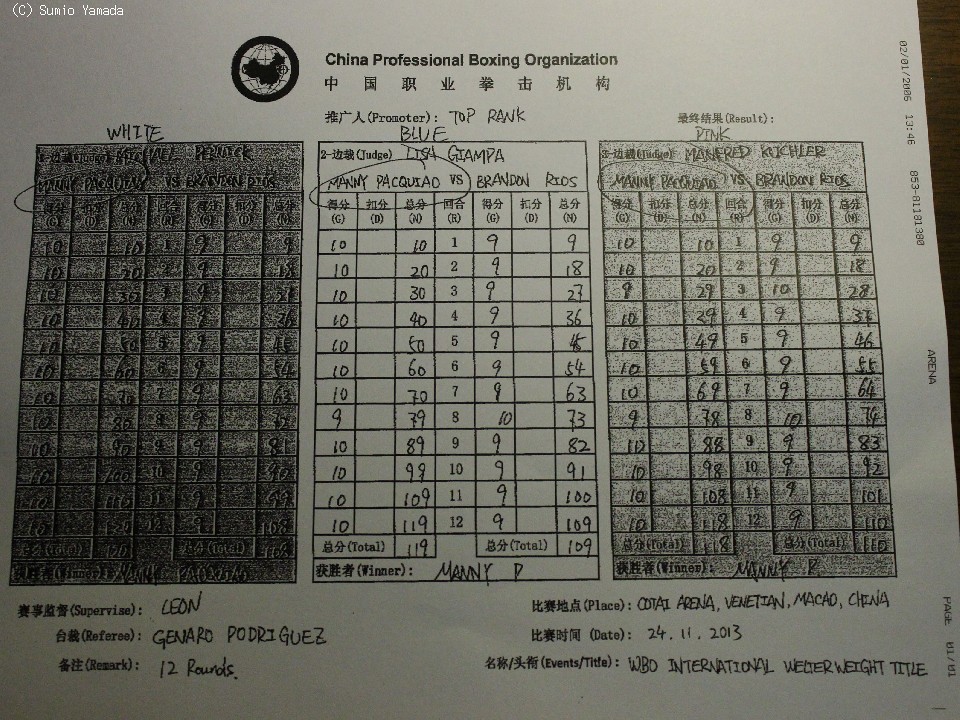 (C) Sumio Yamada
China Professional Boxing Organization
中国职业拳击机构
推广人(Promoter): TOP RANK
最终结果(Result):
WHITE
BLUE
PINK
PERNICK
MANNY PACQUIAO VS BRANDON RIOS
得分 扣分 总分 回合 得分 扣分 总分
(G) (D) (N) (R) (G) (D) (N)
10 10 1 9 9
10 20 2 9 18
10 30 3 9 27
10 40 4 9 36
10 50 5 9 45
10 60 6 9 54
10 70 7 9 63
10 80 8 9 72
10 90 9 9 81
10 100 10 9 90
10 110 11 9 99
10 120 12 9 108
总分(Total) 120 总分(Total) 108
获胜者(Winner): MANNY PACQUIAO
2-边裁(Judge) LISA GIAMPA
MANNY PACQUIAO VS BRANDON RIOS
得分 扣分 总分 回合 得分 扣分 总分
(G) (D) (N) (R) (G) (D) (N)
10 10 1 9 9
10 20 2 9 18
10 30 3 9 27
10 40 4 9 36
10 50 5 9 45
10 60 6 9 54
10 70 7 9 63
9 79 8 10 73
10 89 9 9 82
10 99 10 9 91
10 109 11 9 100
10 119 12 9 109
总分(Total) 119 总分(Total) 109
获胜者(Winner): MANNY P
3-边裁(Judge) MANFRED KUCHLER
MANNY PACQUIAO VS BRANDON RIOS
得分 扣分 总分 回合 得分 扣分 总分
(G) (D) (N) (R) (G) (D) (N)
10 10 1 9 9
10 20 2 9 18
9 29 3 10 28
10 39 4 9 37
10 49 5 9 46
10 59 6 9 55
10 69 7 9 64
9 78 8 10 74
10 88 9 9 83
10 98 10 9 92
10 108 11 9 101
10 118 12 9 110
总分(Total) 118 总分(Total) 110
获胜者(Winner): MANNY P
赛事监督(Supervise): LEON
台裁(Referee): GENARO RODRIGUEZ
备注(Remark): 12 Rounds.
比赛地点(Place): COTAI ARENA, VENETIAN, MACAO, CHINA
比赛时间 (Date): 24.11.2013
名称/头衔(Events/Title): WBO INTERNATIONAL WELTERWEIGHT TITLE
02/01/2006 13:46
853-81181380
ARENA
PAGE 01/01